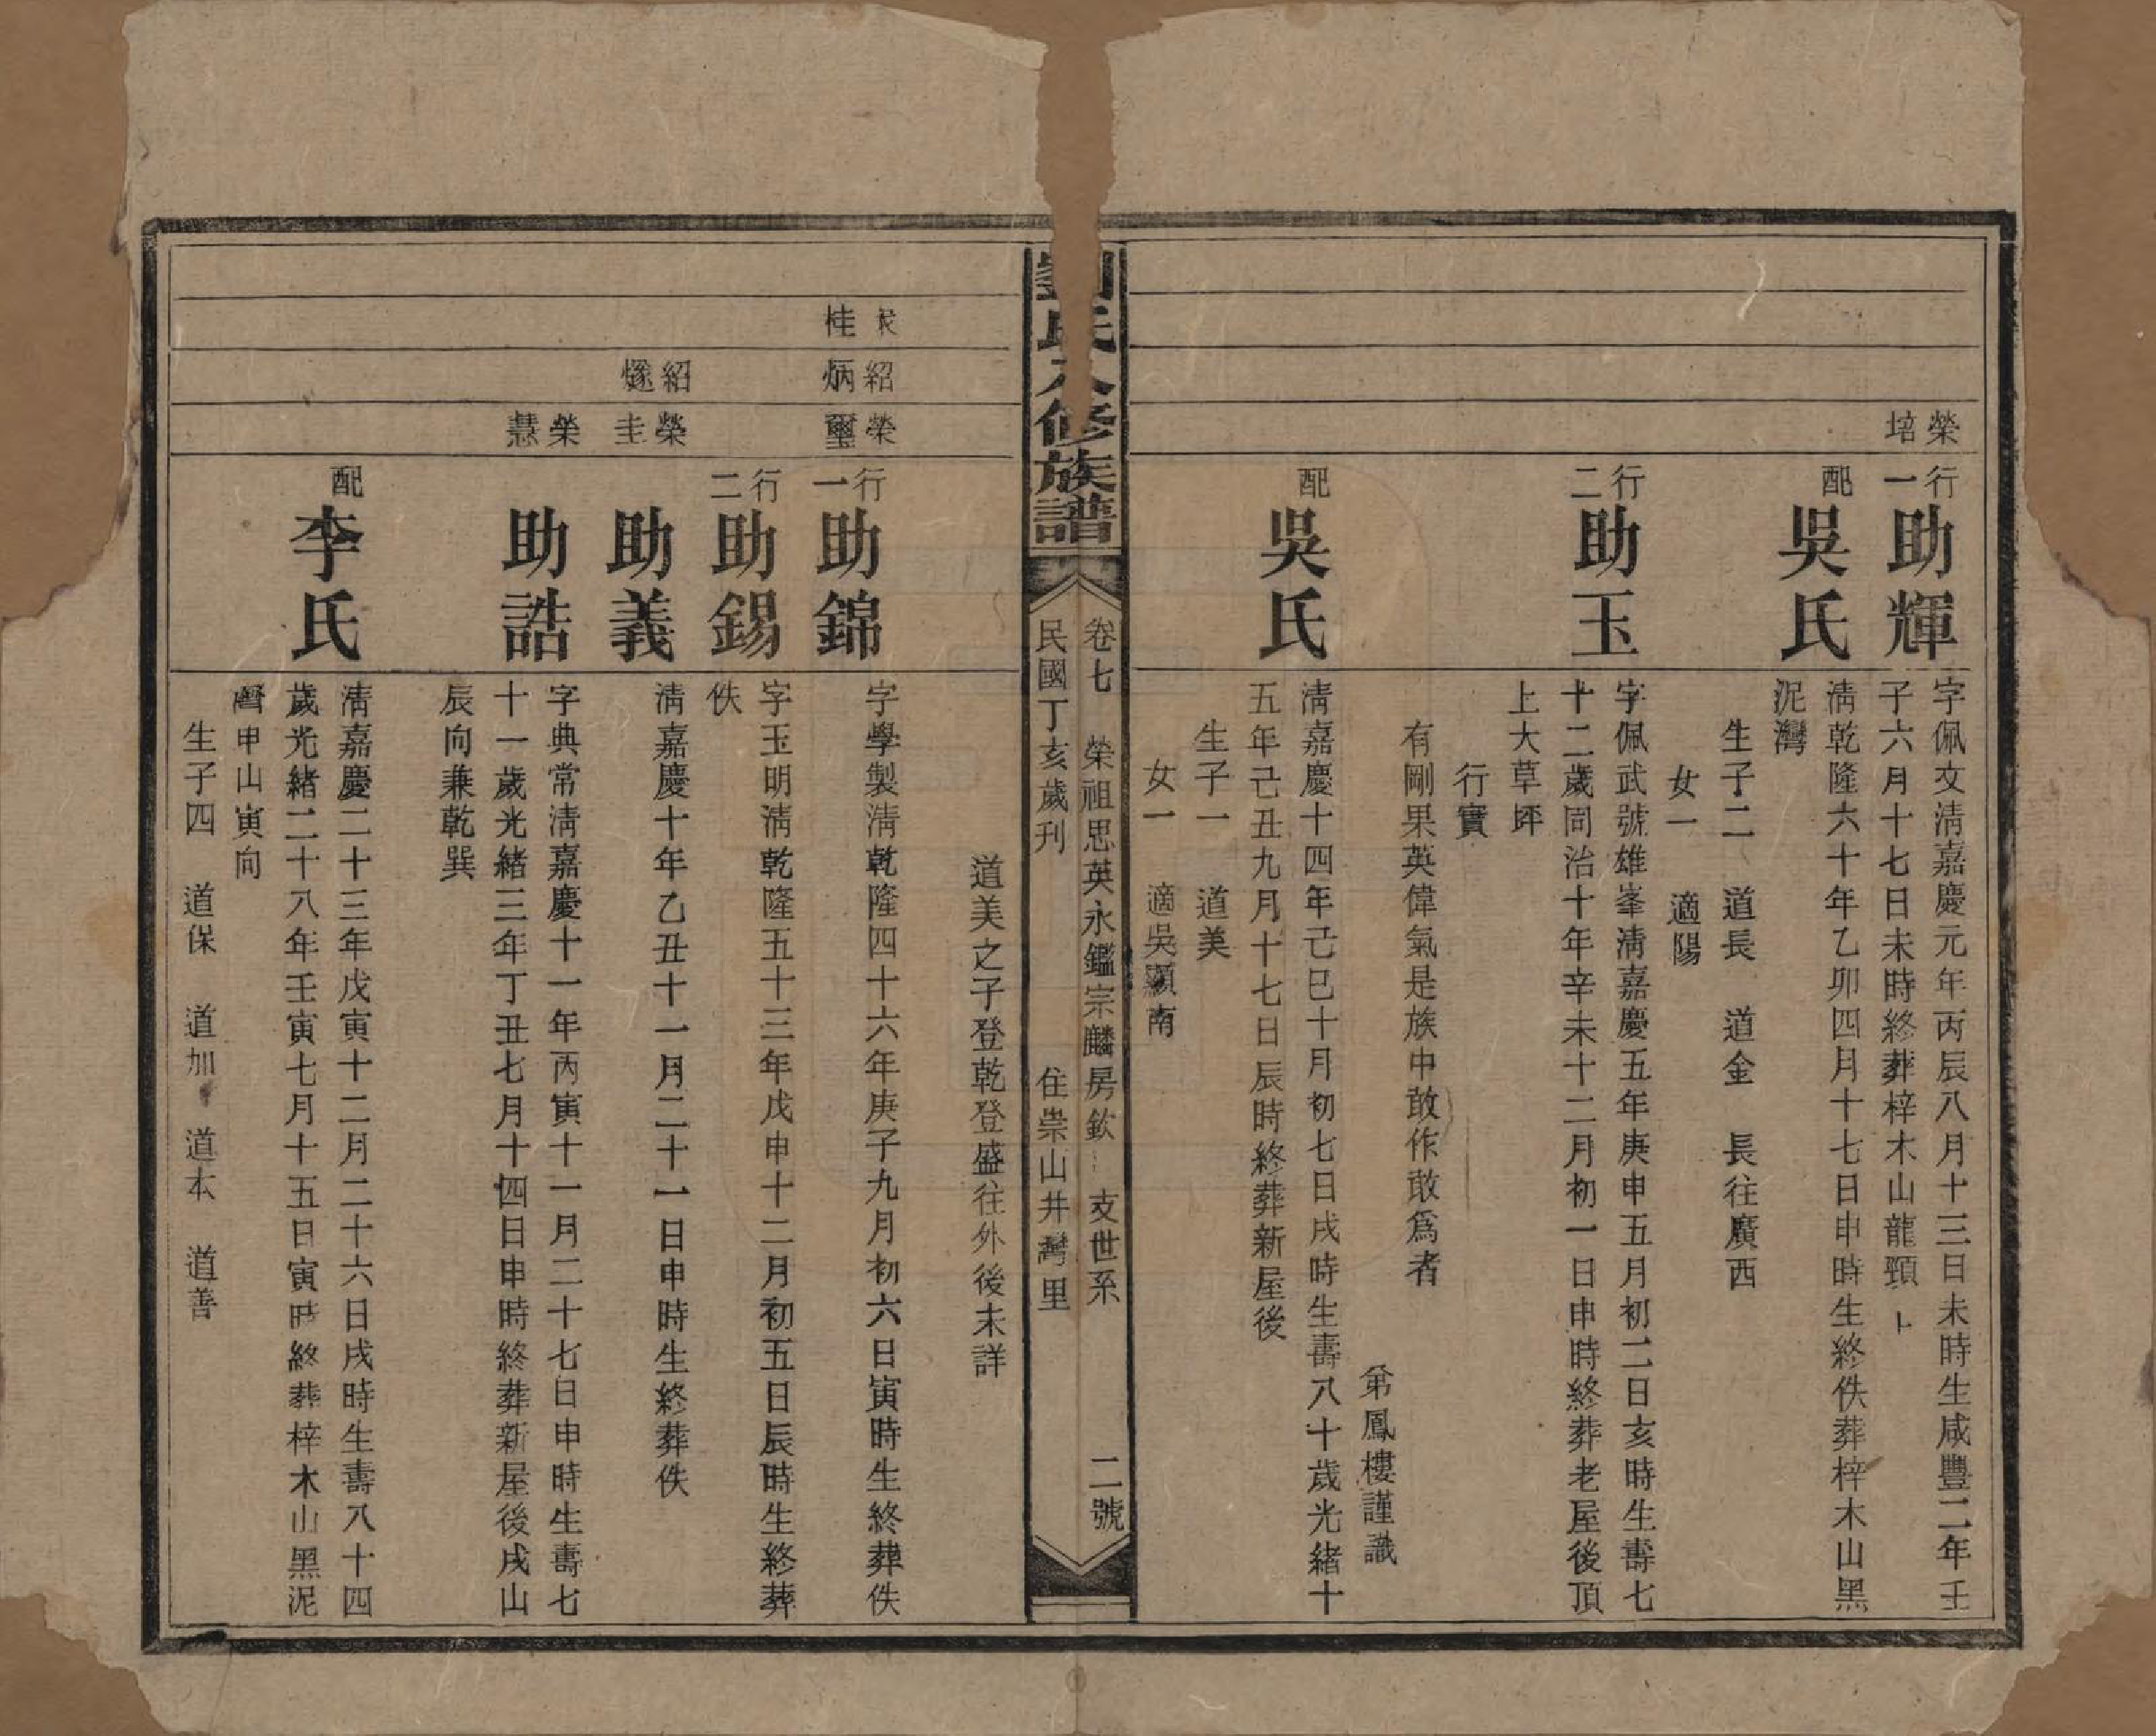 榮
培
行
一
助輝
字佩文清嘉慶元年丙辰八月十三日未時生咸豐二年壬
子六月十七日未時終葬梓木山龍頸
配
吳氏
清乾隆六十年乙卯四月十七日申時生終佚葬梓木山黑
泥灣
生子二 道長 道金 長往廣西
女一 適陽
行
二
助玉
字佩武號雄峯清嘉慶五年庚申五月初二日亥時生壽七
十二歲同治十年辛未十二月初一日申時終葬老屋後頂
上大草坪
行實
有剛果英偉氣是族中敢作敢爲者
弟鳳樓謹識
配
吳氏
清嘉慶十四年己巳十月初七日戌時生壽八十歲光緒十
五年己丑九月十七日辰時終葬新屋後
生子一 道美
女一 適吳顯南
劉氏 修族譜
卷七 榮祖思英永鑑宗麟房欽 支世系 二號
民國丁亥歲刊 住崇山井灣里
道美之子登乾登盛往外後未詳
桂
紹
炳
榮
璽
行
一
助錦
字學製清乾隆四十六年庚子九月初六日寅時生終葬佚
行
二
助錫
字玉明清乾隆五十三年戊申十二月初五日辰時生終葬
佚
紹
燧
榮
圭
助義
清嘉慶十年乙丑十一月二十一日申時生終葬佚
榮
慧
助誥
字典常清嘉慶十一年丙寅十一月二十七日申時生壽七
十一歲光緒三年丁丑七月十四日申時終葬新屋後戌山
辰向兼乾巽
配
李氏
清嘉慶二十三年戊寅十二月二十六日戌時生壽八十四
歲光緒二十八年壬寅七月十五日寅時終葬梓木山黑泥
灣申山寅向
生子四 道保 道加 道本 道善